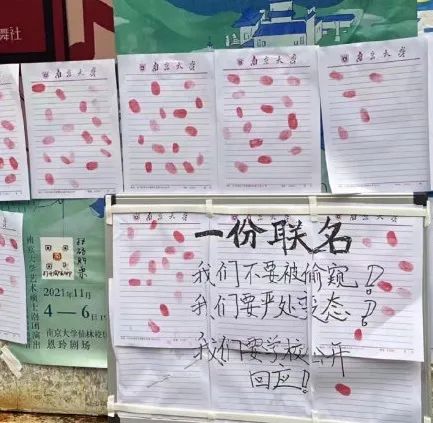 舞社
南京大学
南京大学
南京大学
南京大学
一份联名
我们不要被偷窥!!
我们要严处变态!
我们要学校公开
回应!!
扫码购票
2021年11月
4—6日
南京大学仙林校
恩玲剧场
南京大学艺术硕士剧团演出